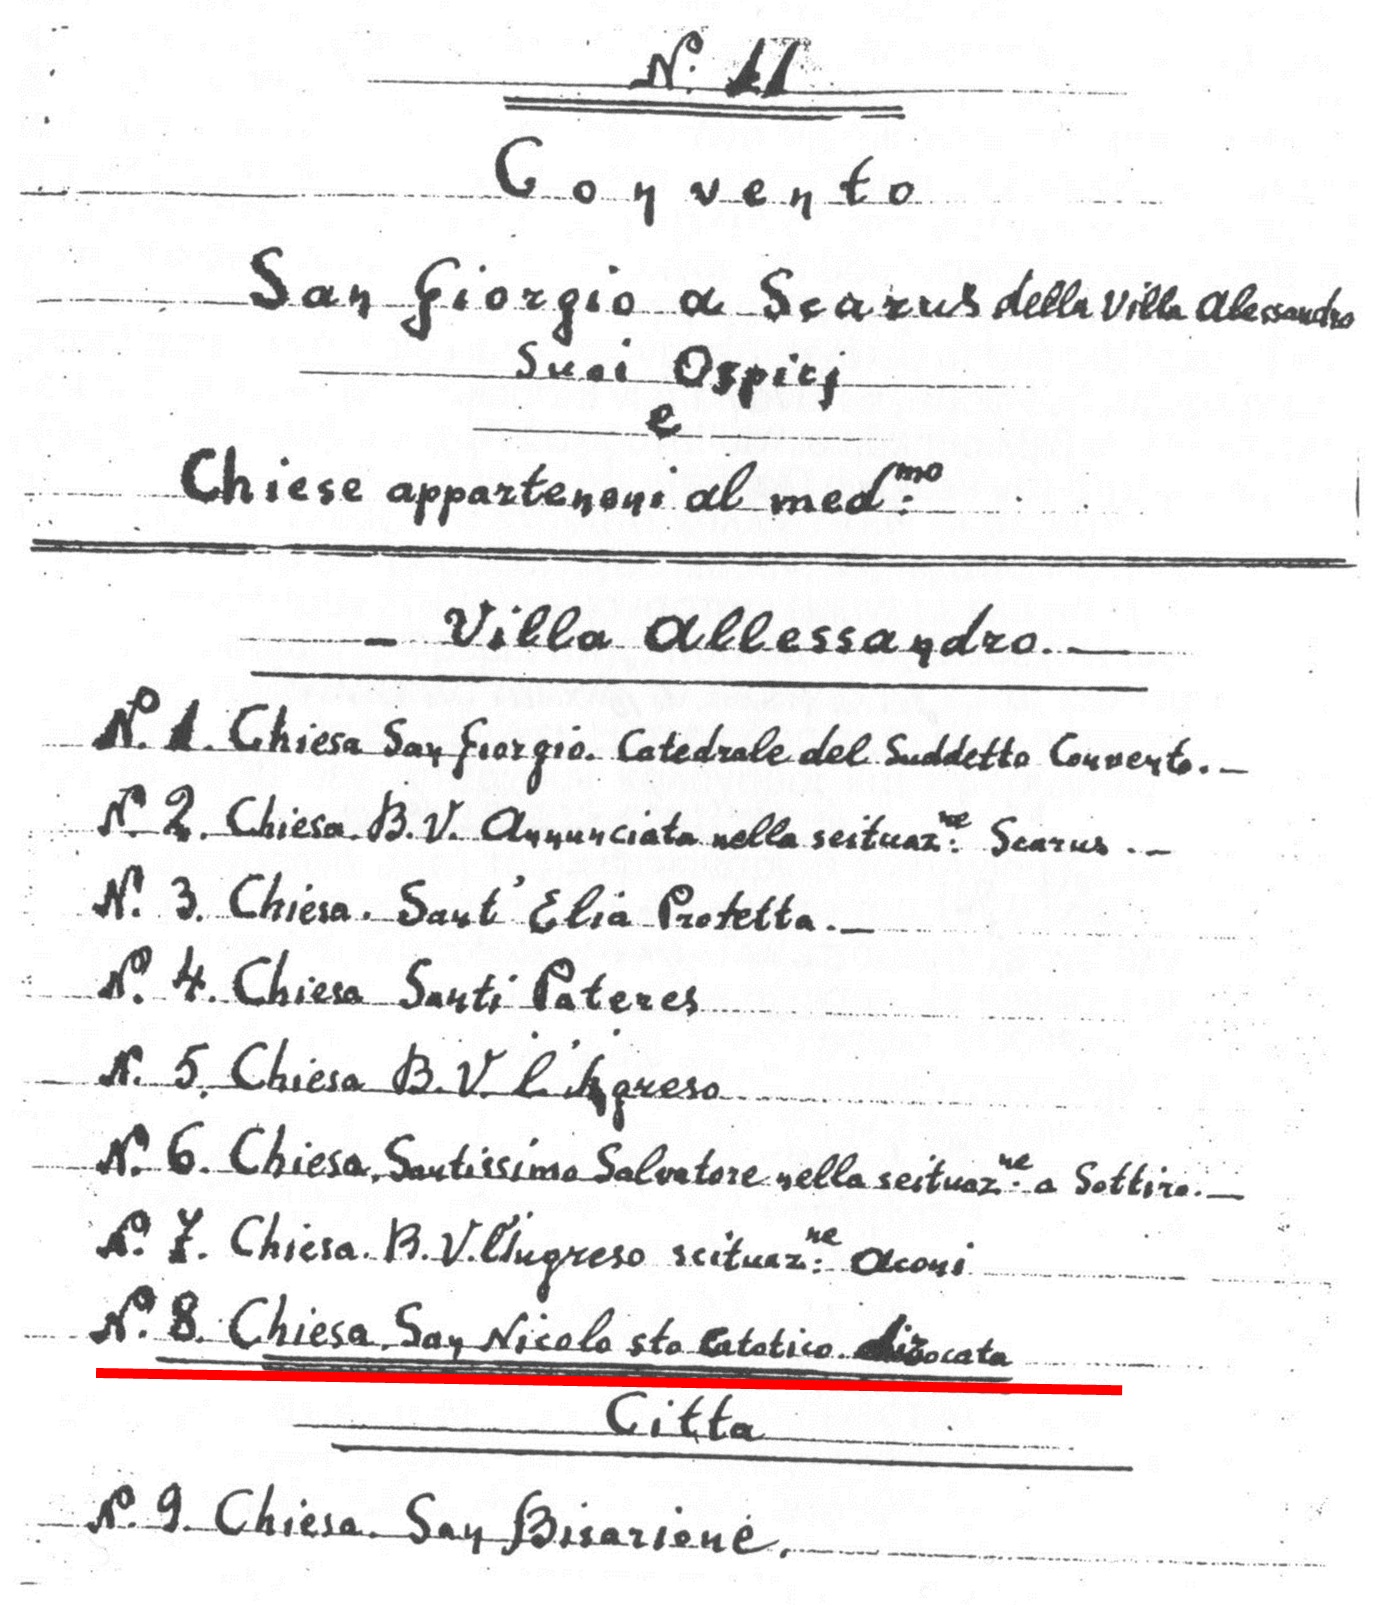 N. 11
Convento
San Giorgio a Scarus della Villa Alessandro
Suoi Ospicj
e
Chiese appartenoni al med:mo
- Villa Allessandro. -
No. 1. Chiesa San Giorgio. Catedrale del Suddetto Convento. -
No. 2. Chiesa B. V. Annunciata nella scituaz:ne Scarus. -
N. 3. Chiesa. Sant' Elia Profetta. -
No. 4. Chiesa Santi Pateres
N. 5. Chiesa B. V. l'Ingreso
N. 6. Chiesa Santissimo Salvatore nella scituaz:ne a Sottiro. -
No. 7. Chiesa. B. V. l'Ingreso scituaz:ne Aconi
No. 8. Chiesa. San Nicolo sto Catotico. dirocata
Citta
N. 9. Chiesa. San Bisarione.